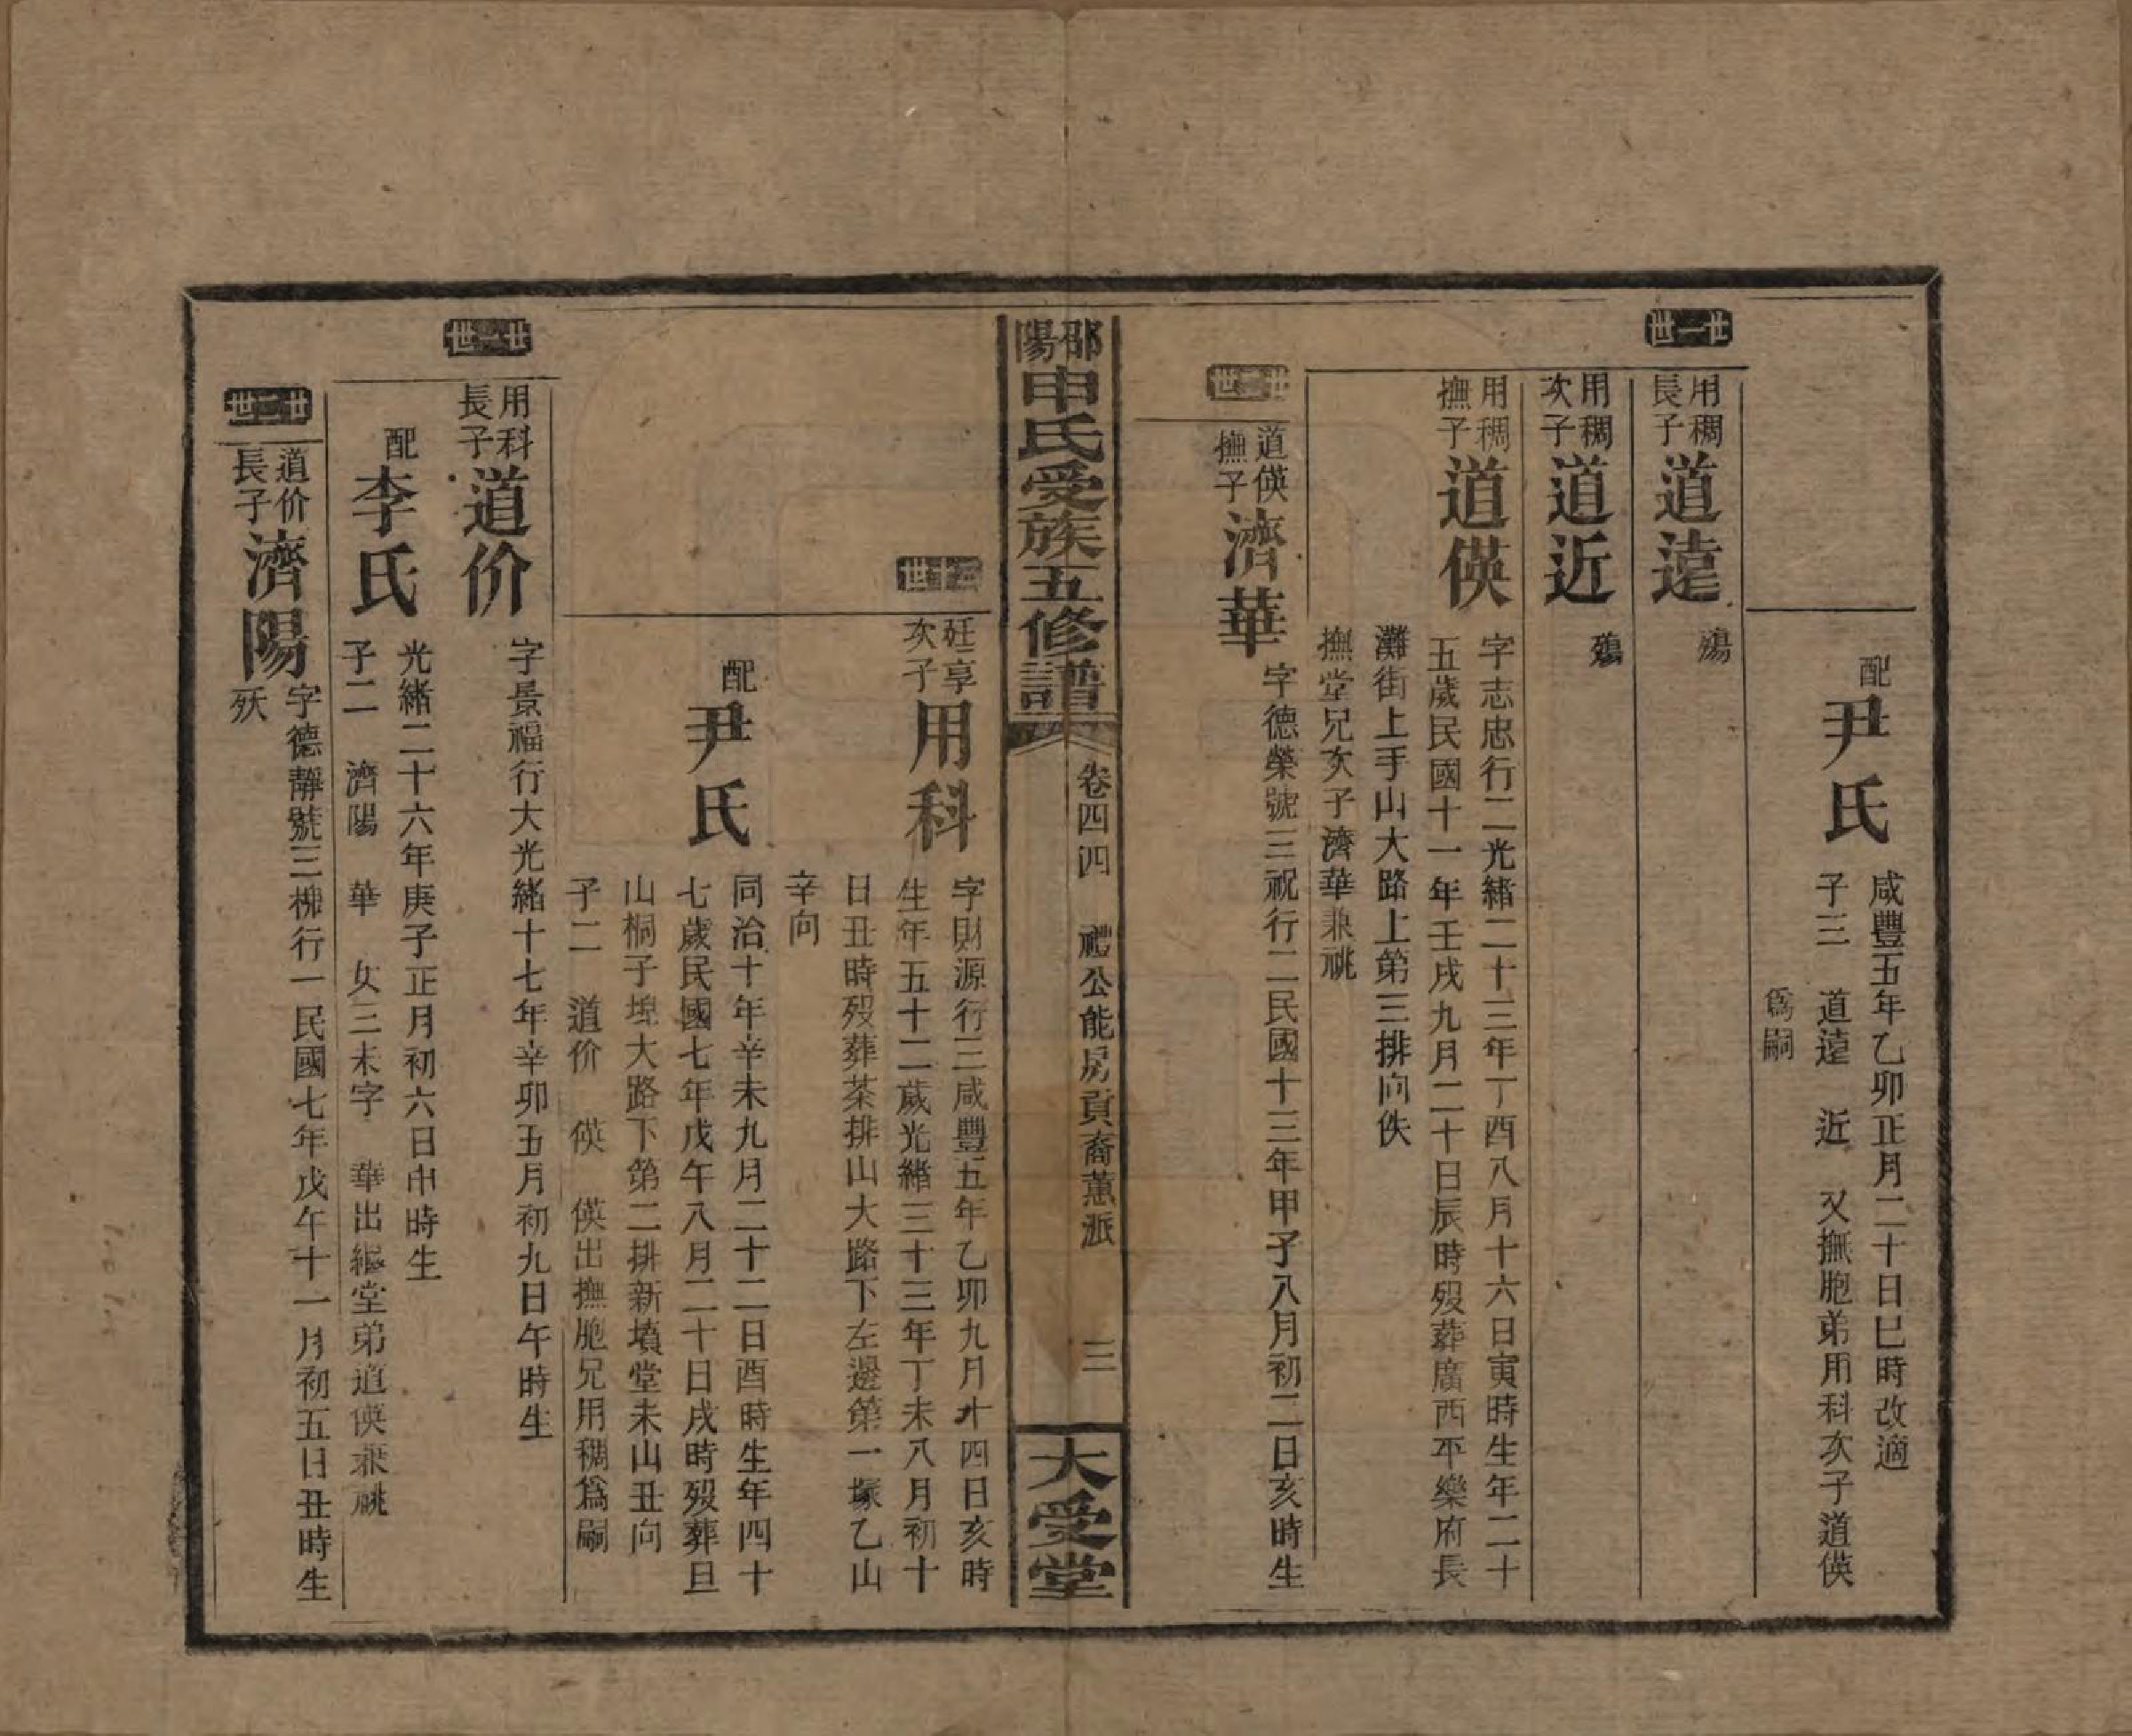 配尹氏
咸豐五年乙卯正月二十日巳時改適
子三 道遠 近 又撫胞弟用科次子道偀
爲嗣
廿一世
用稠長子道遠 殤
用稠次子道近 殤
用稠撫子道偀
字志忠行二光緒二十三年丁酉八月十六日寅時生年二十
五歲民國十一年壬戌九月二十日辰時歿葬廣西平樂府長
灘街上手山大路上第三排向佚
撫堂兄次子濟華兼祧
廿二世
道偀撫子濟華
字德榮號三祝行二民國十三年甲子八月初二日亥時生
邵陽申氏受族五修譜 卷四四 禮公能房貢裔蕙派 三 大受堂
三十世
廷享次子用科
字財源行三咸豐五年乙卯九月十四日亥時
生年五十二歲光緒三十三年丁未八月初十
日丑時歿葬茶排山大路下左邊第一塚乙山
辛向
配尹氏
同治十年辛未九月二十二日酉時生年四十
七歲民國七年戊午八月二十日戌時歿葬旦
山桐子埠大路下第二排新墳堂未山丑向
子二 道价 偀 偀出撫胞兄用稠爲嗣
廿一世
用科長子道价
字景福行大光緒十七年辛卯五月初九日午時生
配李氏
光緒二十六年庚子正月初六日申時生
子二 濟陽 華 女三未字 華出繼堂弟道偀兼祧
廿二世
道价長子濟陽
字德靜號三柳行一民國七年戊午十一月初五日丑時生
殀